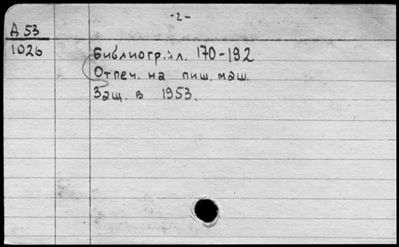 -2-
Д 53
1026
Библиогр.: л. 170-192
Отпеч. на пиш. маш.
Защ. в 1953.